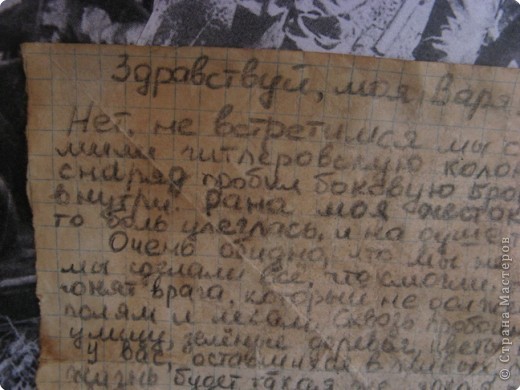 Здравствуй, моя Варя!
Нет, не встретимся мы с
мили гитлеровскую колон
снаряд пробил боковую бро
внутри. Рана моя жесток
то боль улеглась, и на душе
Очень обидно, что мы не
мы сделали всё, что смогли.
гонят врага, который не долж
полям и лесам. Сквозь пробо
улицу, зелёные деревья, цветы
У вас, оставшихся в живых
жизнь будет такая же
© Страна Мастеров